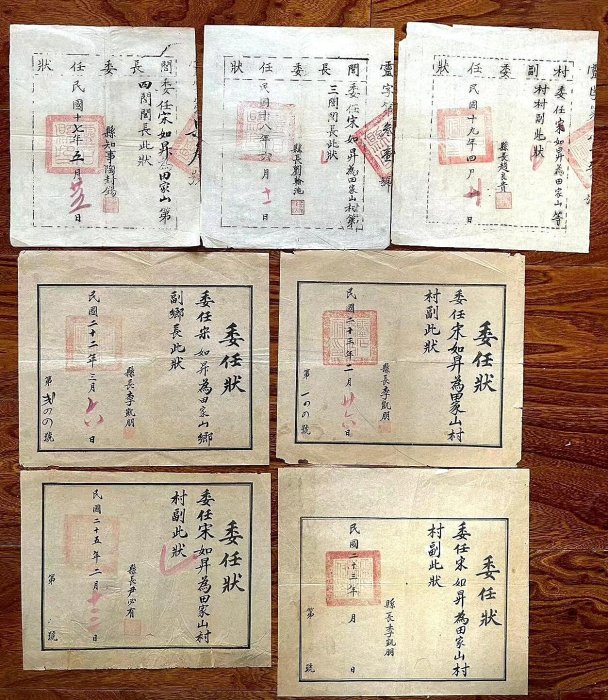 閭長委任狀
委任宋如昇為田家山第
四閭閭長此狀
縣知事陶村錫
民國十七年五月廿五日
閭長委任狀
委任宋如昇為田家山村第
三閭閭長此狀
縣長劉翰池
民國十八年六月十一日
村副委任狀
委任宋如昇為田家山等
村村副此狀
縣長趙良貴
民國十九年四月十日
委任狀
委任宋如昇為田家山鄉
副鄉長此狀
縣長李凱朋
民國二十二年三月十六日
第號
委任狀
委任宋如昇為田家山村
村副此狀
縣長李凱朋
民國二十三年二月廿六日
第號
委任狀
委任宋如昇為田家山村
村副此狀
縣長尹必有
民國二十五年二月十二日
第號
委任狀
委任宋如昇為田家山村
村副此狀
縣長李凱朋
民國二十三年月日
第號